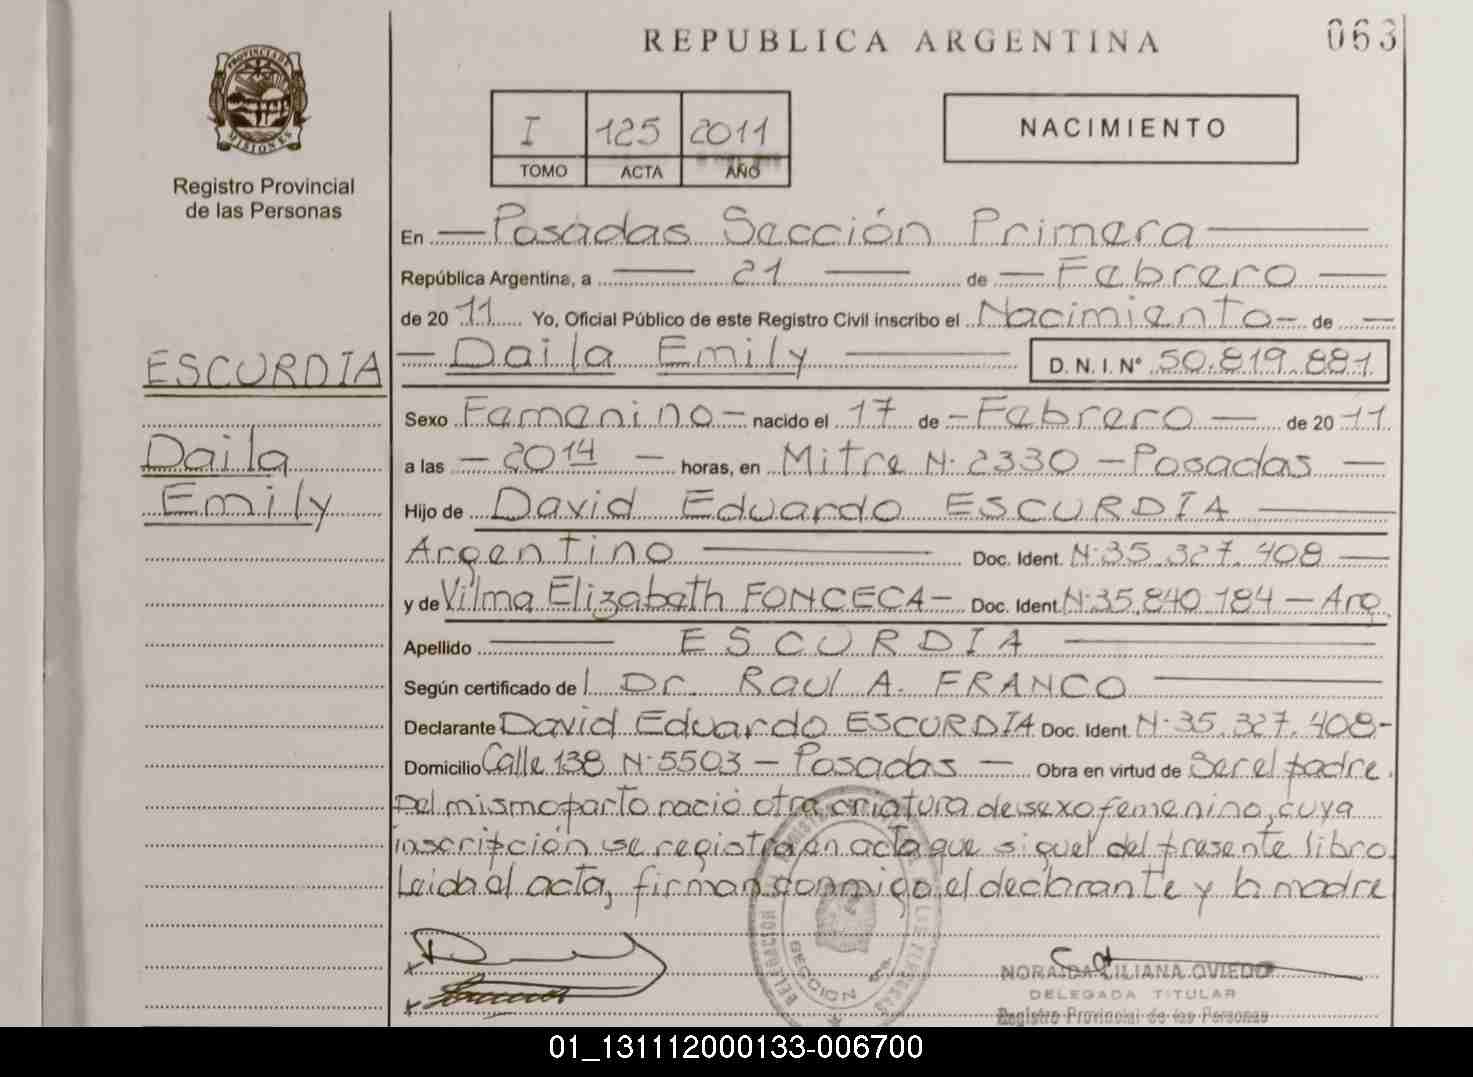 REPUBLICA ARGENTINA
063
PROVINCIA DE MISIONES
Registro Provincial
de las Personas
I 125 2011
TOMO ACTA AÑO
NACIMIENTO
En Posadas Sección Primera
República Argentina, a 21 de Febrero
de 2011 Yo, Oficial Público de este Registro Civil inscribo el Nacimiento de
ESCURDIA
Daila Emily D.N.I. Nº 50.819.881
Sexo Femenino nacido el 17 de Febrero de 2011
Daila
Emily
a las 2014 horas, en Mitre N· 2330 - Posadas
Hijo de David Eduardo ESCURDIA
Argentino Doc. Ident. N·35.327.408
y de Vilma Elizabeth FONCECA Doc. Ident. N·35.840.184 - Arg.
Apellido ESCURDIA
Según certificado del Dr. Raul A. FRANCO
Declarante David Eduardo ESCURDIA Doc. Ident. N·35.327.408-
Domicilio Calle 138 N·5503 - Posadas - Obra en virtud de Ser el padre.
Del mismo parto nació otra criatura de sexo femenino, cuya
inscripción se registra en acta que sigue del presente libro.
Leida el acta, firman conmigo el declarante y la madre
SECCION
NORAIDA LILIANA OVIEDO
DELEGADA TITULAR
Registro Provincial de las Personas
01_131112000133-006700